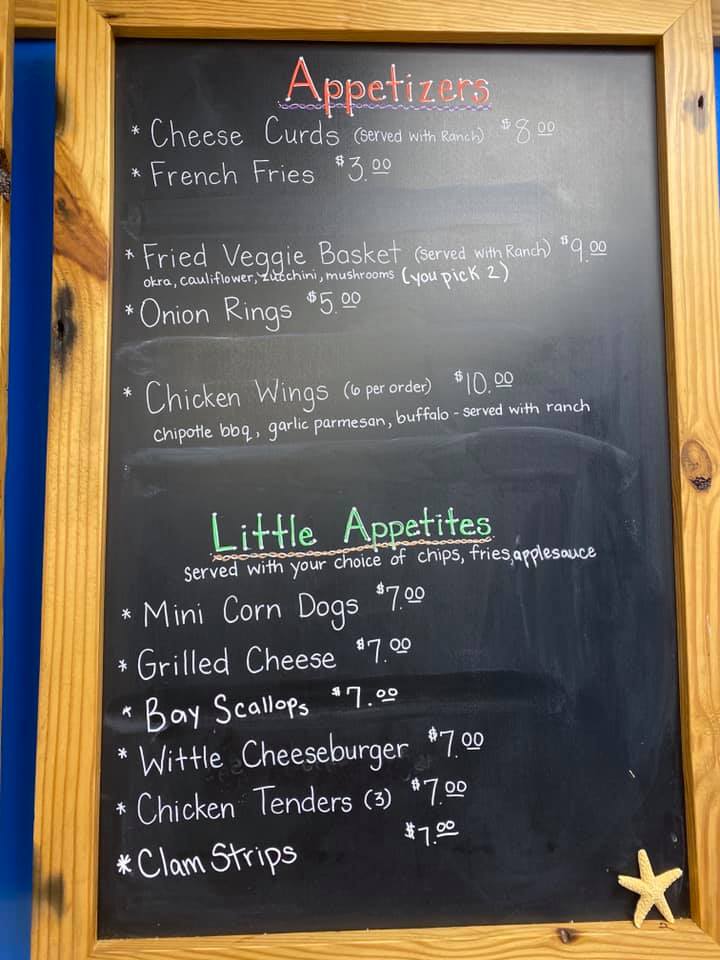 Appetizers
* Cheese Curds (served with Ranch) $8.00
* French Fries $3.00
* Fried Veggie Basket (served with Ranch) $9.00
okra, cauliflower, zucchini, mushrooms (you pick 2)
* Onion Rings $5.00
* Chicken Wings (6 per order) $10.00
chipotle bbq, garlic parmesan, buffalo - served with ranch
Little Appetites
served with your choice of chips, fries, applesauce
* Mini Corn Dogs $7.00
* Grilled Cheese $7.00
* Bay Scallops $7.00
* Wittle Cheeseburger $7.00
* Chicken Tenders (3) $7.00
* Clam Strips $7.00